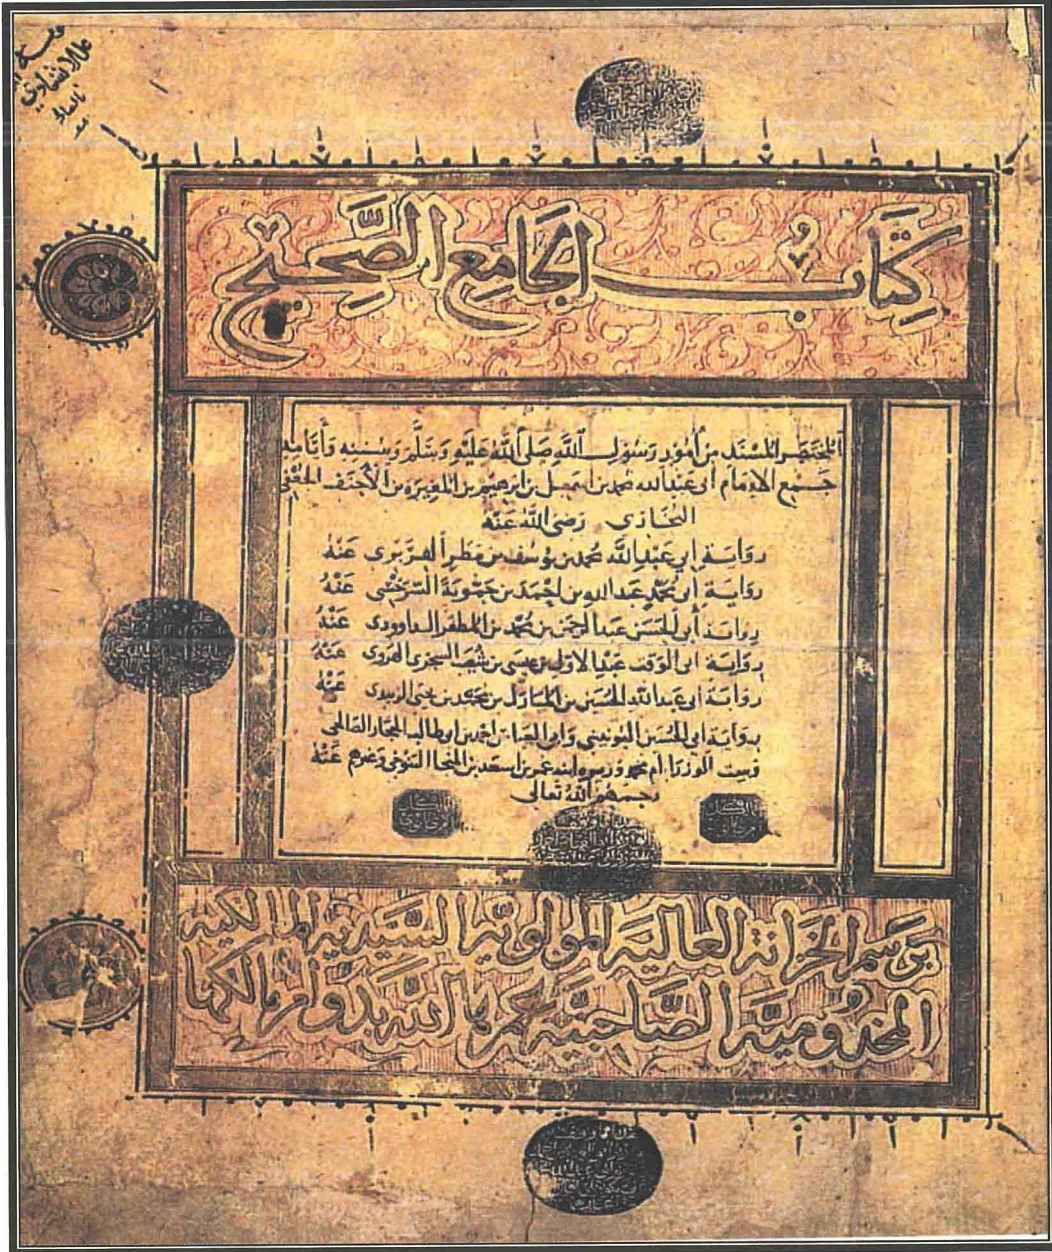 كِتَابُ الجَامِعِ الصَّحِيحِ
المختصر المسند من أمور رسول الله صلى الله عليه وسلم وسننه وأيامه
جمع الإمام أبي عبد الله محمد بن اسمعيل بن ابرهيم بن المغيرة بن الأحنف الجعفي
البخاري رضى الله عنه
رواية أبي عبد الله محمد بن يوسف بن مطر الفربري عنه
رواية أبي محمد عبد الله بن احمد بن حمويه السرخسي عنه
رواية أبي الحسن عبد الرحمن بن محمد بن المظفر الداوودي عنه
رواية ابي الوقت عبد الاول بن عيسى بن شعيب السجزي الهروي عنه
رواية ابي عبد الله الحسين بن المبارك بن محمد بن يحيى الزبيدي عنه
رواية ابي الحسين اليونيني وابي العباس احمد بن ابي طالب الحجار الصالحي
وست الوزرا ام محمد وزيره ابنه عمر بن اسعد بن المنجا التنوخي وغيرهم عنه
رحمهم الله تعالى
برسم الخزانة العالية المولوية السيدية المالكية
المخدومية الصاحبية عمرها الله بدوام مالكها